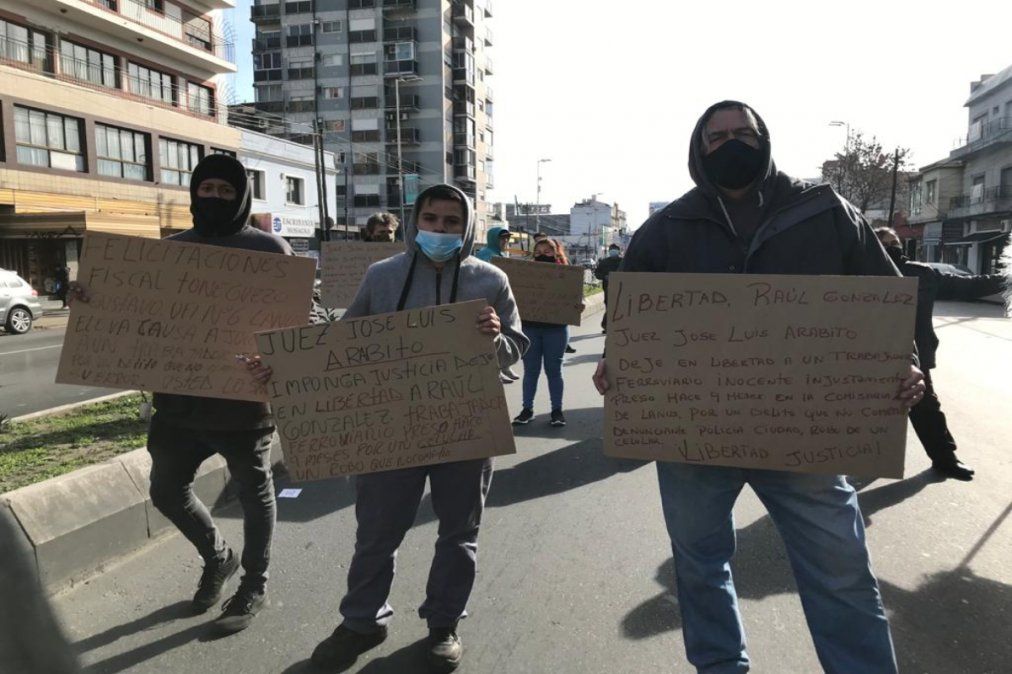 FELICITACIONES
FISCAL
GUSTAVO
ELEVA CAUSA A JUICIO
A UN TRABAJADOR
POR UN DELITO QUE NO
USTED
JUEZ JOSE LUIS
ARABITO
IMPONGA JUSTICIA DEJE
EN LIBERTAD A RAÚL
GONZALEZ TRABAJADOR
FERROVIARIO PRESO HACE
9 MESES POR UN CELULAR
UN ROBO QUE NO
LIBERTAD, RAÚL GONZALEZ
JUEZ JOSE LUIS ARABITO
DEJE EN LIBERTAD A UN TRABAJADOR
FERROVIARIO INOCENTE INJUSTAMENTE
PRESO HACE 9 MESES EN LA COMISARIA
DE LANUS, POR UN DELITO QUE NO
DENUNCIANTE POLICIA CIUDAD, ROBO DE UN
CELULAR.
LIBERTAD JUSTICIA!
ESCRIBANIA